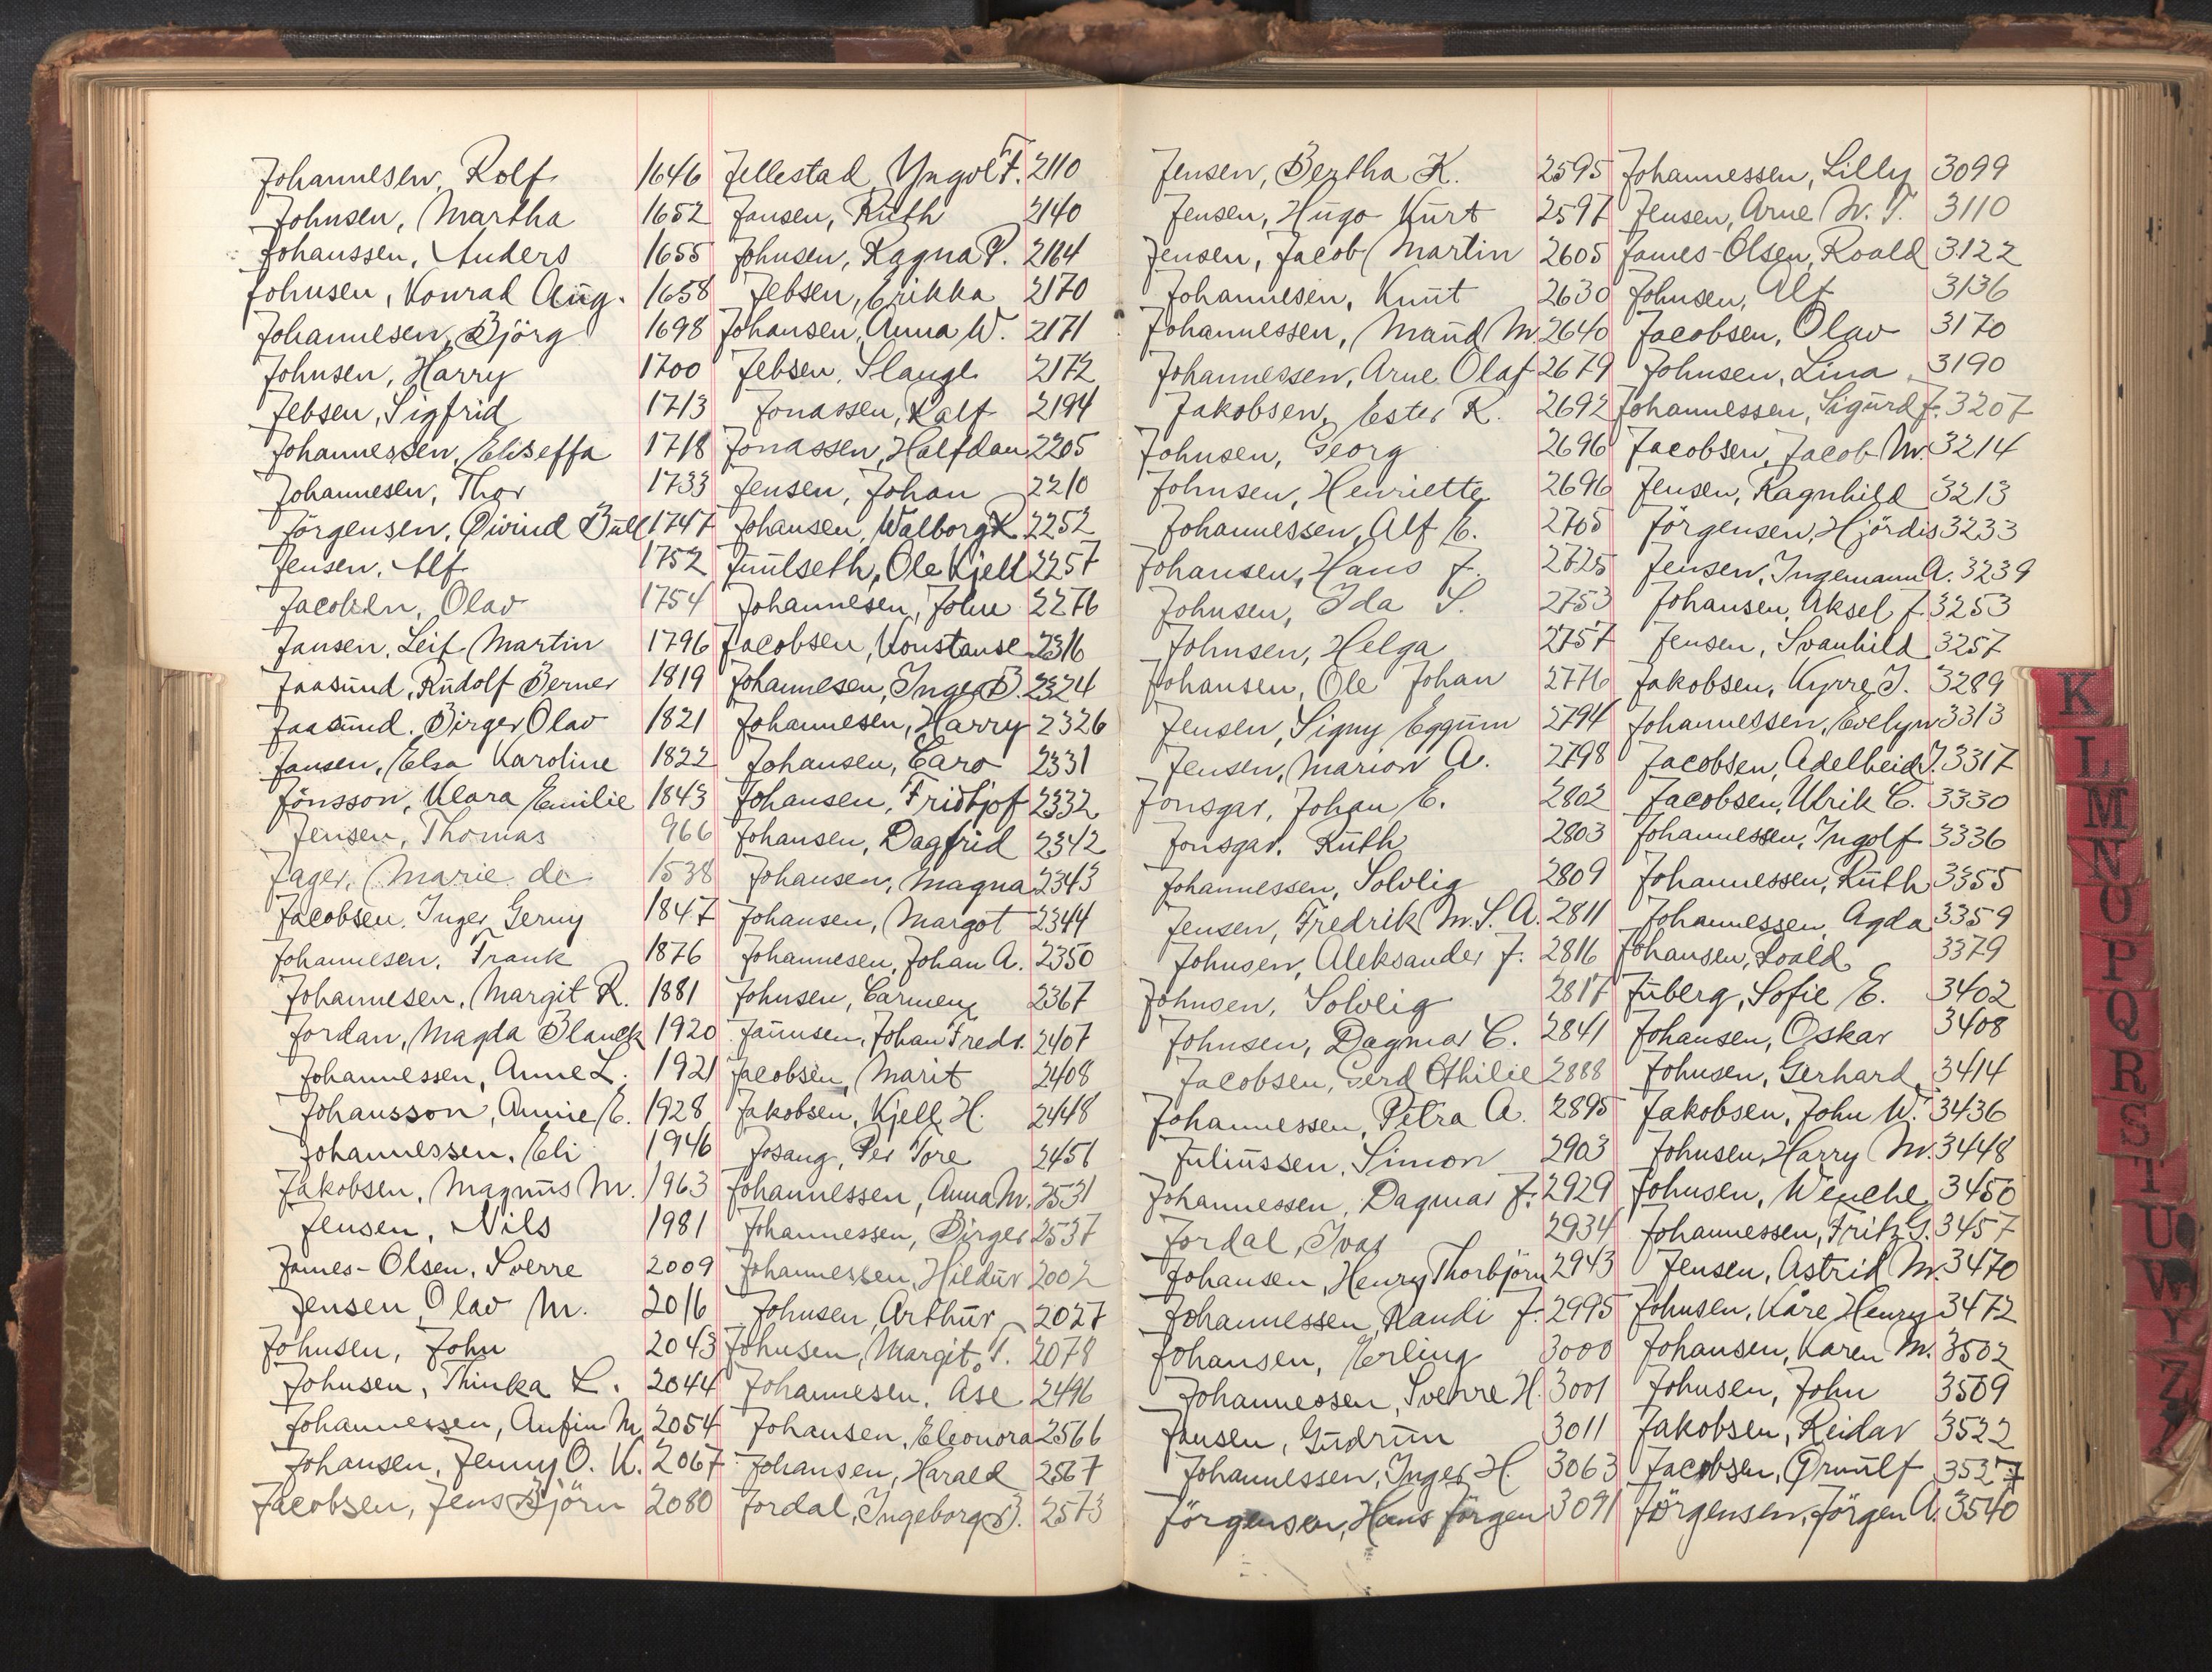 Johannesen, Rolf 1646
Johnsen, Martha 1652
Johanssen, Anders 1655
Johnsen, Konrad Aug. 1658
Johannesen, Björg 1698
Johnsen, Harry 1700
Jebsen, Sigfrid 1713
Johannessen, Eliseffa 1718
Johannesen, Thor 1733
Jörgensen, Öivind Bull 1747
Jensen, Alf 1752
Jacobsen, Olav 1754
Jansen, Leif Martin 1796
Jaasund, Rudolf Berner 1819
Jaasund, Birger Olav 1821
Jansen, Elsa Karoline 1822
Jönsson, Klara Emilie 1843
Jensen, Thomas 966
Jager, Marie de 1538
Jacobsen, Inger Gerny 1847
Johannesen, Frank 1876
Johannesen, Margit R. 1881
Jordan, Magda Blanck 1920
Johannessen, Anne L. 1921
Johansson, Annie E. 1928
Johannessen, Eli 1946
Jakobsen, Magnus M. 1963
Jensen, Nils 1981
James-Olsen, Sverre 2009
Jensen, Olav M. 2016
Johnsen, John 2043
Johnsen, Thinka L. 2044
Johannessen, Anfin M. 2054
Johansen, Jenny O. K. 2067
Jacobsen, Jens Björn 2080
Jellestad, Yngol F. 2110
Jansen, Ruth 2140
Johnsen, Ragna P. 2164
Jebsen, Erikka 2170
Johansen, Anna W. 2171
Jebsen, Slauge 2172
Jonassen, Ralf 2194
Jonassen, Halfdan 2205
Jensen, Johan 2210
Johansen, Walborg R. 2252
Juulseth, Ole Kjell 2257
Johannesen, John 2276
Jacobsen, Konstanse 2316
Johannesen, Inger B. 2324
Johannesen, Harry 2326
Johansen, Caro 2331
Johansen, Fridtjof 2332
Johansen, Dagfrid 2342
Johansen, Magna 2343
Johansen, Margot 2344
Johannesen, Johan A. 2350
Johnsen, Carmen 2367
Jaunsen, Johan Fredr. 2407
Jacobsen, Marit 2408
Jakobsen, Kjell H. 2448
Josang, Per Tore 2451
Johannessen, Anna M. 2531
Johannessen, Birger 2537
Johannessen, Hildur 2002
Johnsen, Arthur 2027
Johnsen, Margit, T. 2078
Johannesen, Åse 2496
Johansen, Eleonora 2566
Johansen, Harald 2567
Jordal, Ingeborg B. 2573
Jensen, Bertha K. 2595
Jensen, Hugo Kurt 2597
Jensen, Jacob Martin 2605
Johannesen, Knut 2630
Johannessen, Maud M. 2640
Johannessen, Arne Olaf 2679
Jakobsen, Ester R. 2692
Johnsen, Georg 2696
Johnsen, Henriette 2696
Johannessen, Alf E. 2705
Johansen, Hans J. 2725
Johnsen, Ida S. 2753
Johnsen, Helga 2757
Johansen, Ole Johan 2776
Jensen, Signy Eggum 2794
Jensen, Marion A. 2798
Jonsgar, Johan E. 2802
Jonsgar, Ruth 2803
Johannessen, Solveig 2809
Jensen, Fredrik M. S. A. 2811
Johnsen, Aleksander J. 2816
Johnsen, Solveig 2817
Johnsen, Dagmar C. 2841
Jacobsen, Gerd Othilie 2888
Johannessen, Petra A. 2895
Juliussen, Simon 2903
Johannessen, Dagmar J. 2929
Jordal, Ivar 2934
Johansen, Henry Thorbjörn 2943
Johannessen, Randi J. 2995
Johansen, Erling 3000
Johannessen, Sverre H. 3001
Jansen, Gudrun 3011
Johannessen, Inger H. 3063
Jörgensen, Hans Jörgen 3091
Johannessen, Lilly 3099
Jensen, Arne W. T. 3110
James-Olsen, Roald 3122
Johnsen, Alf 3136
Jacobsen, Olav 3170
Johnsen, Lina 3190
Johannessen, Sigurd J. 3207
Jacobsen, Jacob M. 3214
Jensen, Ragnhild 3213
Jörgensen, Hjördis 3233
Jensen, Ingemann A. 3239
Johansen, Aksel J. 3253
Jensen, Svanhild 3257
Jakobsen, Kyrre J. 3289
Johannessen, Evelyn 3313
Jacobsen, Adelheid J. 3317
Jacobsen, Ulrik C. 3330
Johannessen, Ingolf 3336
Johannessen, Ruth 3355
Johannessen, Agda 3359
Johansen, Roald 3379
Juberg, Sofie E. 3402
Johansen, Oskar 3408
Johnsen, Gerhard 3414
Jakobsen, John W. 3436
Johnsen, Harry M. 3448
Johnsen, Wenche 3450
Johannessen, Fritz G. 3457
Jensen, Astrid M. 3470
Johnsen, Kåre Henry 3472
Johansen, Karen M. 3502
Johnsen, John 3509
Jakobsen, Reidar 3522
Jacobsen, Ørnulf 3527
Jörgensen, Jörgen A. 3540
K
L
M
N
O
P
Q
R
S
T
U
W
Y
Z